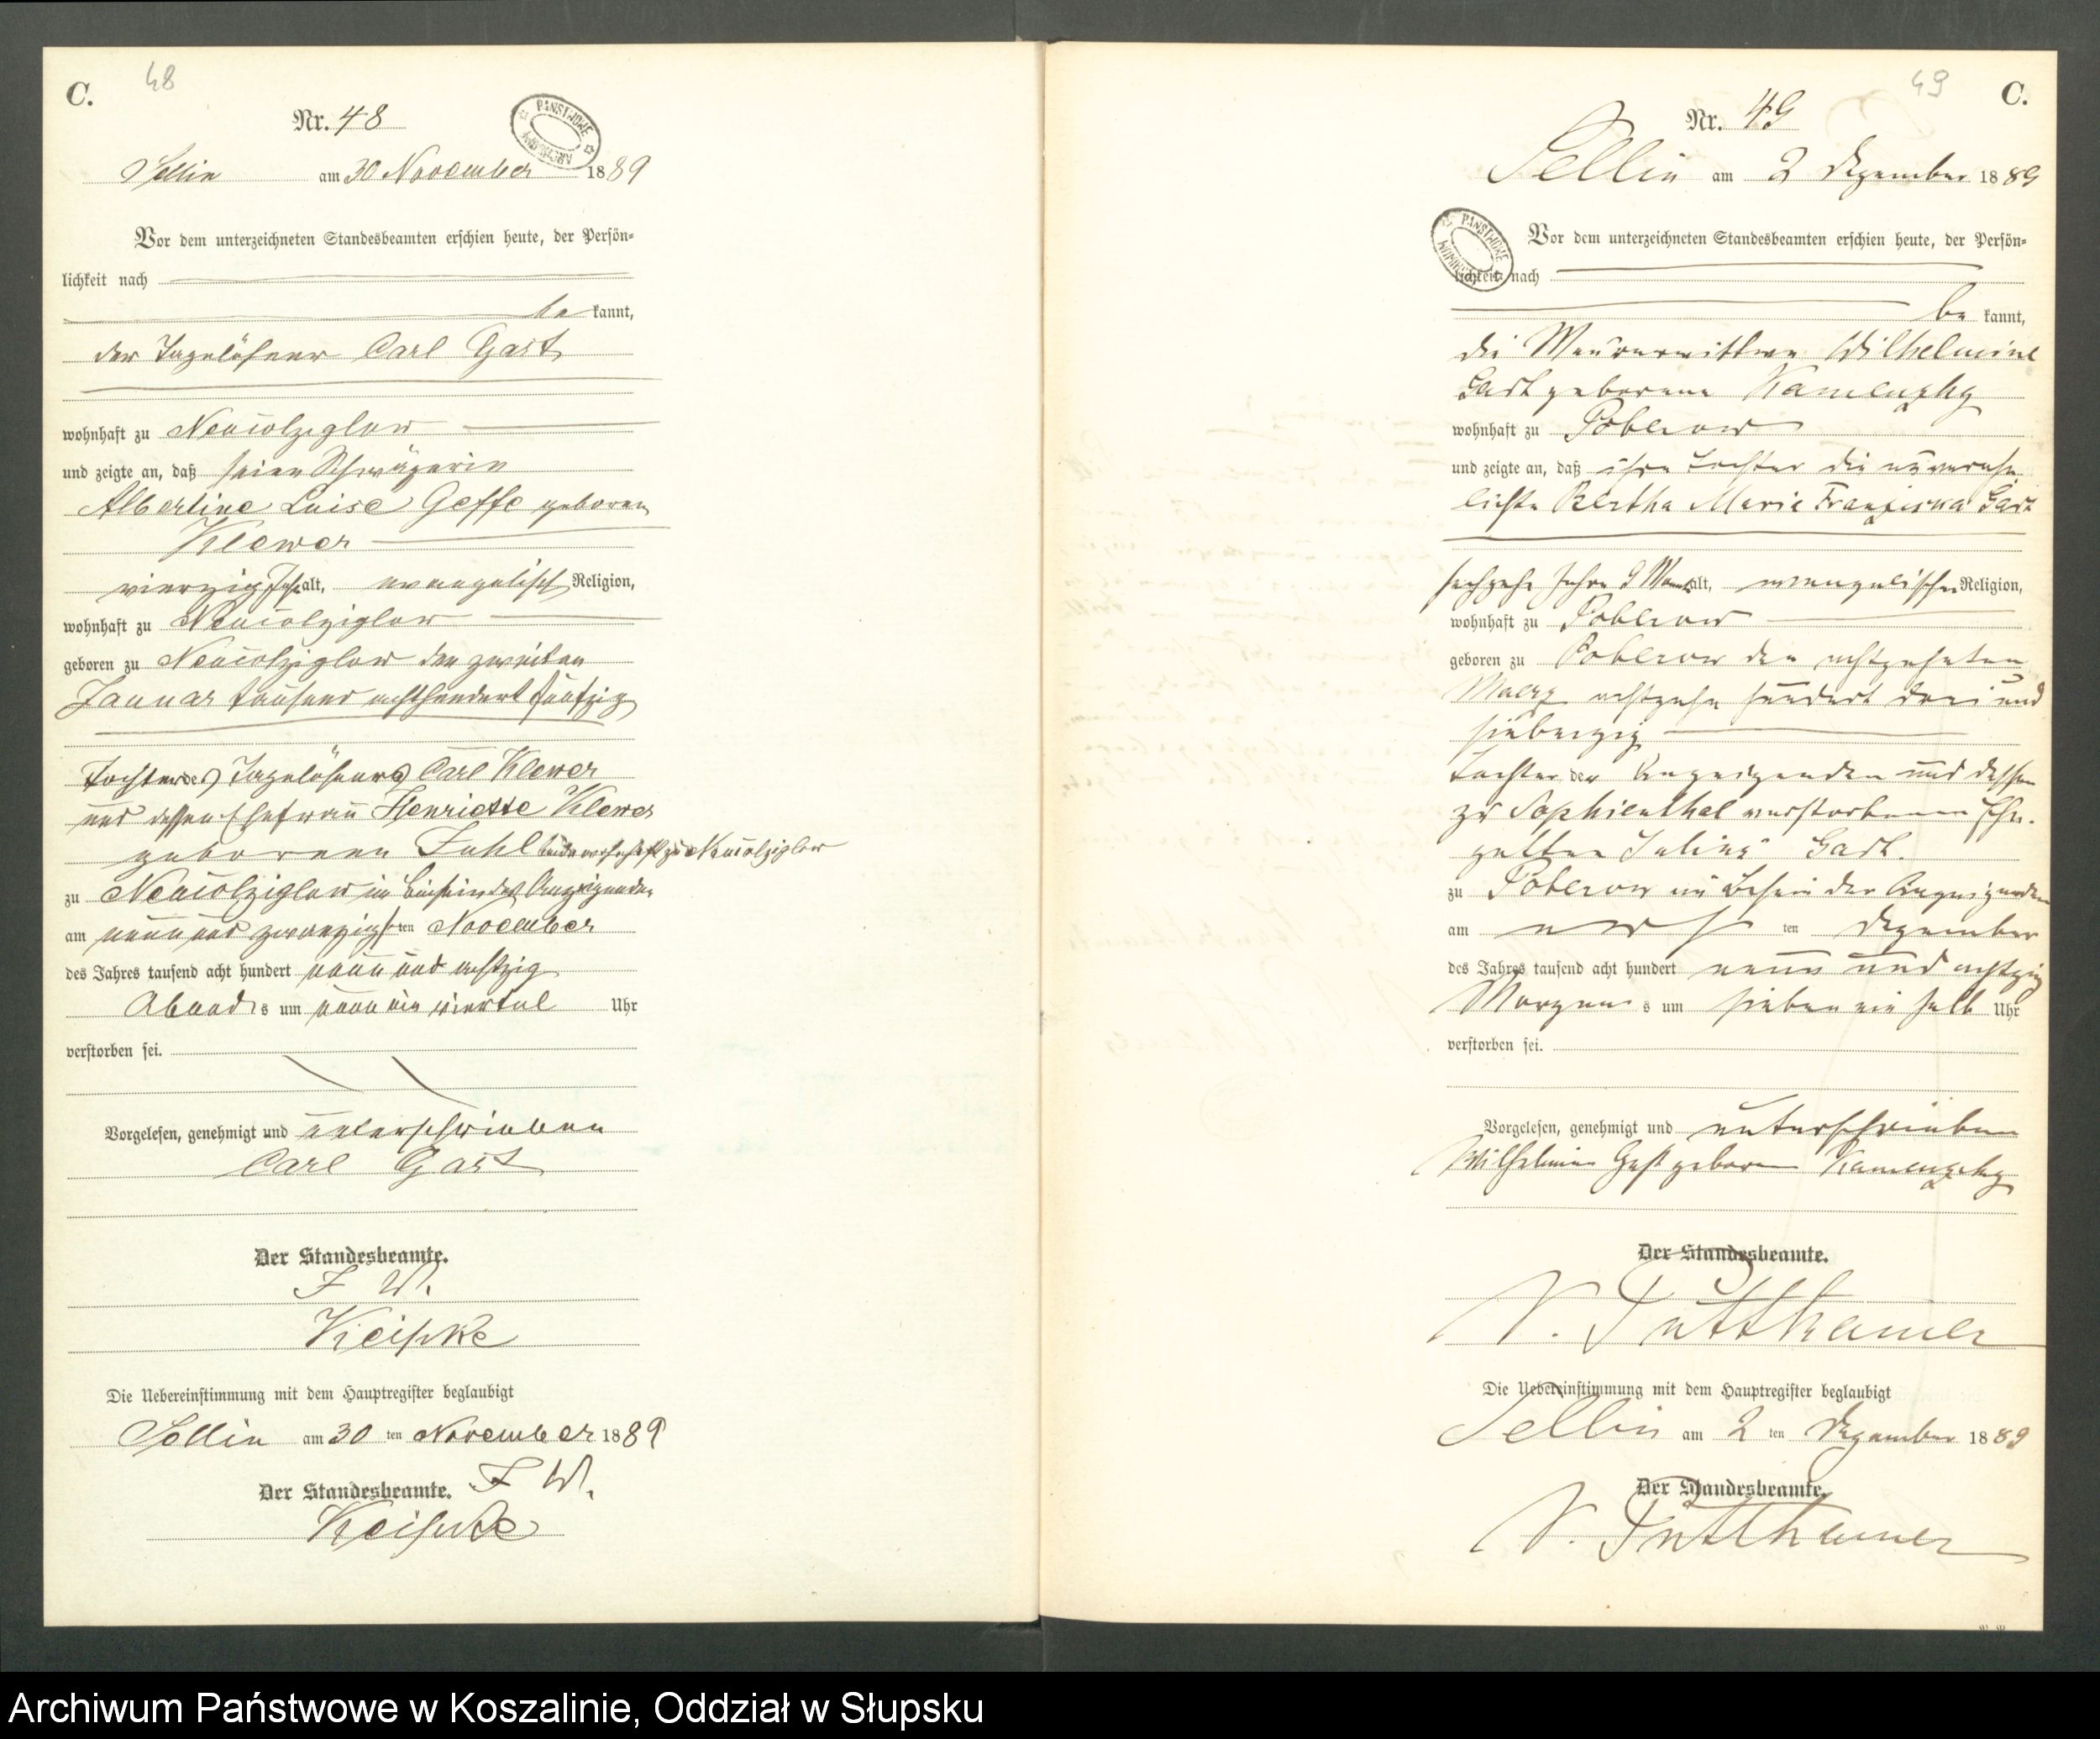 C.
48
Nr. 48
Sellin am 30 November 1889
Vor dem unterzeichneten Standesbeamten erschien heute, der Persön-
lichkeit nach
be kannt,
der Tagelöhner Carl Gast
wohnhaft zu Neuwolziglow
und zeigte an, daß seine Schwägerin
Albertine Luise Geffe geboren
Klewer
vierzig Jahr alt, evangelisch Religion,
wohnhaft zu Neuwolziglow
geboren zu Neuwolziglow den zweiten
Januar tausend achthundert fünfzig
Tochter des Tagelöhners Carl Klewer
und dessen Ehefrau Henriette Klewer
geborenen wohnhaft zu Neuwolziglow
zu Neuwolziglow im Beisein des Anzeigenden
am neun und zwanzigsten November
des Jahres tausend acht hundert neun und achtzig
Abends um neun ein viertel Uhr
verstorben sei.
Vorgelesen, genehmigt und unterschrieben
Carl Gast
Der Standesbeamte.
Die Uebereinstimmung mit dem Hauptregister beglaubigt
Sellin am 30 ten November 1889
Der Standesbeamte.
49
C.
Nr. 49
Sellin am 2 Dezember 1889
Vor dem unterzeichneten Standesbeamten erschien heute, der Persön-
lichkeit nach
be kannt,
die Maurerwittwe Wilhelmine
Gast geborene
wohnhaft zu Poberow
und zeigte an, daß ihre Tochter die unverehe
lichte Bertha Marie Franziska Gast
sechzehn Jahre 9 Monat alt, evangelischer Religion,
wohnhaft zu Poberow
geboren zu Poberow den achtzehnten
Maerz achtzehn hundert drei und
siebenzig
Tochter der Anzeigenden und dessen
zu Sophienthal verstorbenen Ehe-
gatten Julius Gast.
zu Poberow im Beisein der Anzeigenden
am ersten Dezember
des Jahres tausend acht hundert neun und achtzig
Morgens um sieben ein halb Uhr
verstorben sei.
Vorgelesen, genehmigt und unterschrieben
Wilhelmine Gast geborene
Der Standesbeamte.
v. Puttkamer
Die Uebereinstimmung mit dem Hauptregister beglaubigt
Sellin am 2 ten Dezember 1889
Der Standesbeamte.
v. Puttkamer
Archiwum Państwowe w Koszalinie, Oddział w Słupsku